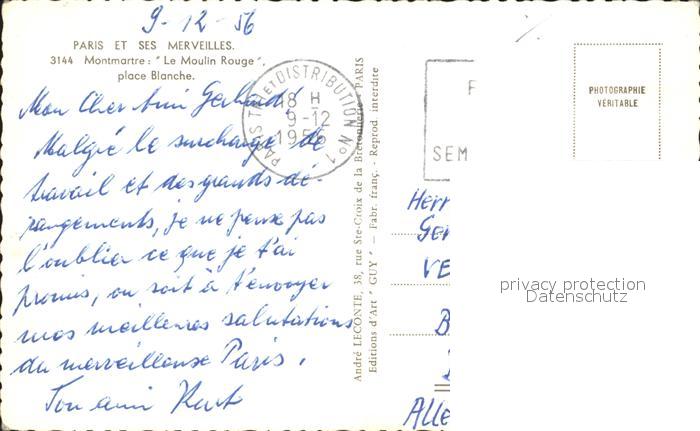 9-12-56
PARIS ET SES MERVEILLES.
3144 Montmartre : " Le Moulin Rouge ",
place Blanche.
Mon Cher Ami Gerhard!
Malgré le surcharge de
travail et des grands dé-
rangements, je ne pense pas
l'oublier ce que je t'ai
promis, ou soit à t'envoyer
mes meilleures salutations
du merveilleuse Paris.
Ton ami Kurt
PARIS TRI et DISTRIBUTION No 1
18 H
9-12
1956
André LECONTE, 38, rue Ste-Croix de la Bretonnerie, PARIS
Editions d'Art " GUY " — Fabr. franç. - Reprod. interdite
F
SEM
PHOTOGRAPHIE
VÉRITABLE
Herr
Ger
VE
B
Alle
privacy protection
Datenschutz